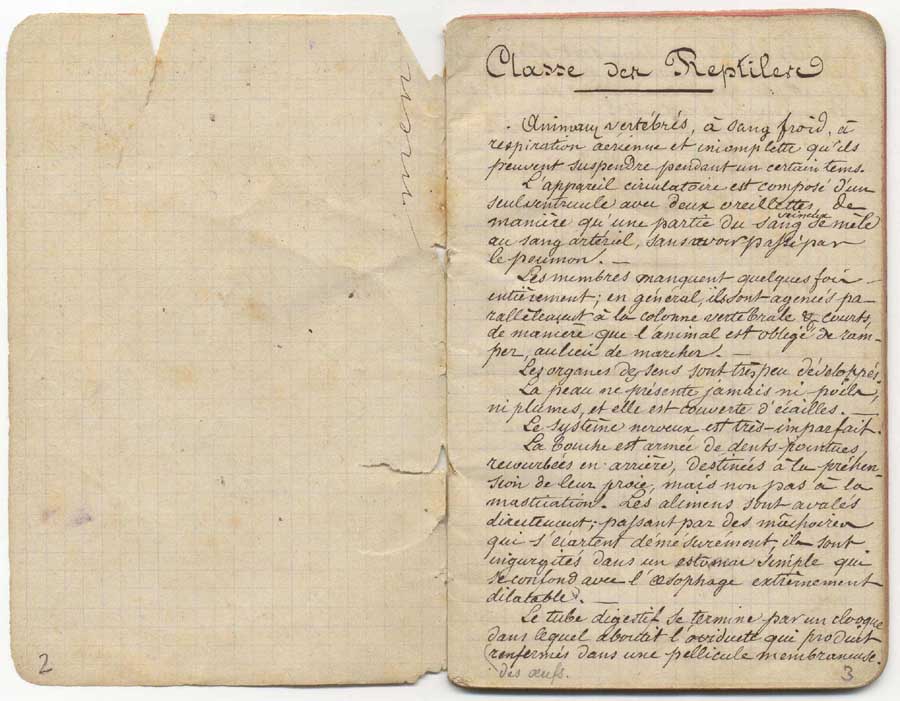 2
Classe des Reptiles
Animaux vertébrés, à sang froid, à
respiration aérienne et incomplette qu'ils
peuvent suspendre pendant un certain tems.
L'appareil circulatoire est composé d'un
seul ventricule avec deux oreillettes, de
manière qu'une partie du sang veineux se mêle
au sang artériel, sans avoir passé par
le poumon. —
Les membres manquent quelques fois
entièrement; en général, ils sont agencés pa-
rallèlement à la colonne vertébrale & courts,
de manière que l'animal est obligé de ram-
per, au lieu de marcher. —
Les organes des sens sont très peu développés.
La peau ne présente jamais ni poils,
ni plumes, et elle est couverte d'écailles. —
Le système nerveux est très-imparfait.
La bouche est armée de dents pointues,
recourbées en arrière, destinées à la préhen-
sion de leur proie, mais non pas à la
mastication. Les alimens sont avalés
directement; passant par des mâchoires
qui s'écartent démésurément, ils sont
ingurgités dans un estomac simple qui
se confond avec l'œsophage extrêmement
dilatable. —
Le tube digestif se termine par un cloaque
dans lequel aboutit l'oviducte qui produit
renfermés dans une pellicule membraneuse.
des œufs.
3